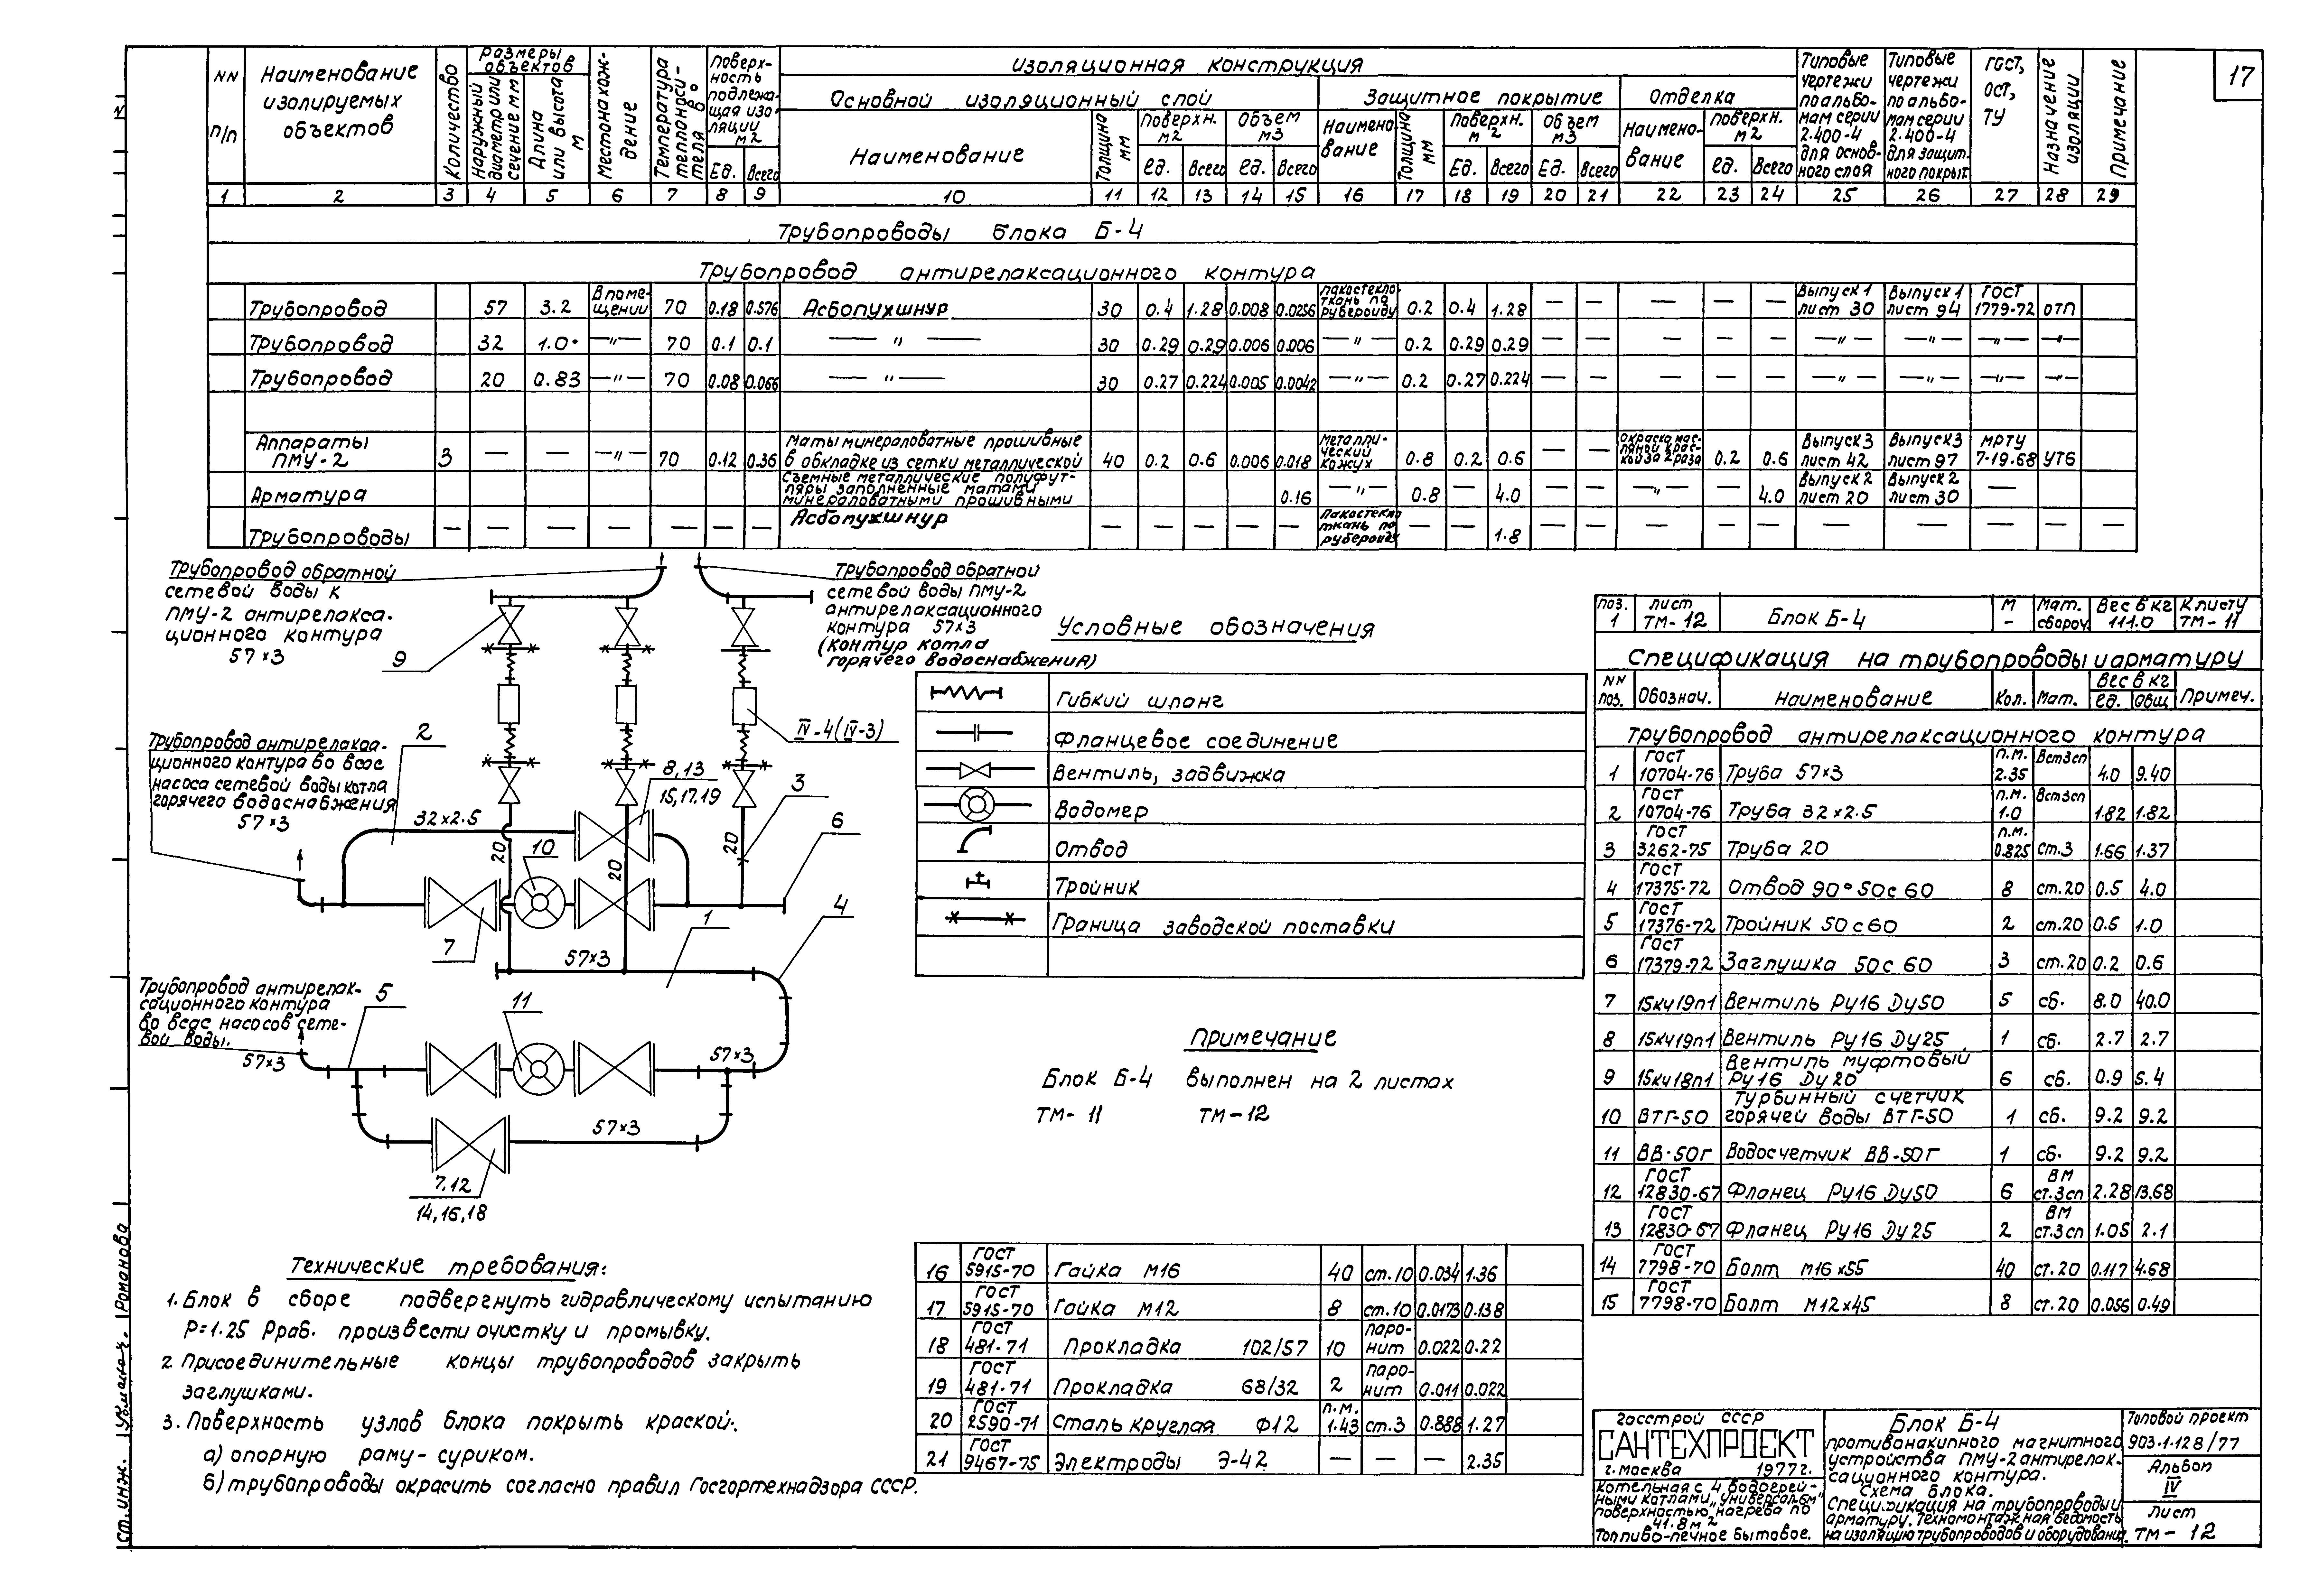 17
NN п/п
Наименование изолируемых объектов
Количество
Размеры объектов
Наружный диаметр или сечение мм
Длина или высота м
Местонахождение
Температура теплоносителя в °
Поверхность подлежащая изоляции м2
Ед. Всего
Изоляционная конструкция
Основной изоляционный слой
Наименование
Толщина мм
Поверхн. м2
Ед. Всего
Объем м3
Ед. Всего
Защитное покрытие
Наименование
Толщина мм
Поверхн. м2
Ед. Всего
Объем м3
Ед. Всего
Отделка
Наименование
Поверхн. м2
Ед. Всего
Типовые чертежи по альбомам серии 2.400-4 для основного слоя
Типовые чертежи по альбомам серии 2.400-4 для защит. ного покрыт.
ГОСТ, ОСТ, ТУ
Назначение изоляции
Примечание
1 2 3 4 5 6 7 8 9 10 11 12 13 14 15 16 17 18 19 20 21 22 23 24 25 26 27 28 29
Трубопроводы блока Б-4
Трубопровод антирелаксационного контура
Трубопровод 57 3.2 В помещении 70 0.18 0.576 Асбопухшнур 30 0.4 1.28 0.008 0.0256 лакостеклоткань по рубероиду 0.2 0.4 1.28 — — — — — Выпуск 1 лист 30 Выпуск 1 лист 94 ГОСТ 1779-72 ОТП
Трубопровод 32 1.0 —"— 70 0.1 0.1 —"— 30 0.29 0.29 0.006 0.006 —"— 0.2 0.29 0.29 — — — — — —"— —"— —"— —"—
Трубопровод 20 0.83 —"— 70 0.08 0.066 —"— 30 0.27 0.224 0.005 0.0042 —"— 0.2 0.27 0.224 — — — — — —"— —"— —"— —"—
Аппараты ПМУ-2 3 — — —"— 70 0.12 0.36 Маты минераловатные прошивные в обкладке из сетки металлической 40 0.2 0.6 0.006 0.018 Металлический кожух 0.8 0.2 0.6 — — Окраска масляной краской за 2 раза 0.2 0.6 Выпуск 3 лист 42 Выпуск 3 лист 97 МРТУ 7-19-68 УТБ
Арматура Съемные металлические полуфутляры заполненные матами минераловатными прошивными 0.16 —"— 0.8 — 4.0 — — —"— 4.0 Выпуск 2 лист 20 Выпуск 2 лист 30 — —
Трубопроводы — — — — — — — Асбопухшнур — — — — — Лакостеклоткань по рубероиду — — 1.8 — — — — — — — — — —
Трубопровод обратной
сетевой воды к
ПМУ-2 антирелакса-
ционного контура
57×3
9
Трубопровод обратной
сетевой воды ПМУ-2
антирелаксационного
контура 57×3
(контур котла
горячего водоснабжения)
IV-4(IV-3)
Трубопровод антирелакса-
ционного контура во всас
насоса сетевой воды котла
горячего водоснабжения
57×3
2
32×2.5
8,13
15,17.19
3
6
20
20
20
10
7
1
4
57×3
Трубопровод антирелак-
сационного контура
во всас насосов сете-
вой воды.
57×3
5
11
57×3
57×3
7.12
14,16,18
Условные обозначения
Гибкий шланг
Фланцевое соединение
Вентиль, задвижка
Водомер
Отвод
Тройник
Граница заводской поставки
Примечание
Блок Б-4 выполнен на 2 листах
ТМ-11 ТМ-12
Поз. 1 Лист ТМ-12 Блок Б-4 М - Мат. сбороч. Вес в кг 111.0 К листу ТМ-11
Спецификация на трубопроводы и арматуру
NN поз. Обознач. Наименование Кол. Мат. Вес в кг Ед. Общ Примеч.
Трубопровод антирелаксационного контура
1 ГОСТ 10704-76 Труба 57×3 п.м. 2.35 Вст3сп 4.0 9.40
2 ГОСТ 10704-76 Труба 32×2.5 п.м. 1.0 Вст3сп 1.82 1.82
3 ГОСТ 3262-75 Труба 20 п.м. 0.825 Ст.3 1.66 1.37
4 ГОСТ 17375-72 Отвод 90° 50с60 8 ст.20 0.5 4.0
5 ГОСТ 17376-72 Тройник 50с60 2 ст.20 0.5 1.0
6 ГОСТ 17379-72 Заглушка 50с60 3 ст.20 0.2 0.6
7 15кч19п1 Вентиль Ру16 Ду50 5 сб. 8.0 40.0
8 15кч19п1 Вентиль Ру16 Ду25 1 сб. 2.7 2.7
9 15кч18п1 Вентиль муфтовый Ру16 Ду20 6 сб. 0.9 5.4
10 ВТГ-50 Турбинный счетчик горячей воды ВТГ-50 1 сб. 9.2 9.2
11 ВВ-50Г Водосчетчик ВВ-50Г 1 сб. 9.2 9.2
12 ГОСТ 12830-67 Фланец Ру16 Ду50 6 ВМ ст.3сп 2.28 13.68
13 ГОСТ 12830-67 Фланец Ру16 Ду25 2 ВМ ст.3сп 1.05 2.1
14 ГОСТ 7798-70 Болт М16×55 40 ст.20 0.117 4.68
15 ГОСТ 7798-70 Болт М12×45 8 ст.20 0.056 0.49
16 ГОСТ 5915-70 Гайка М16 40 ст.10 0.034 1.36
17 ГОСТ 5915-70 Гайка М12 8 ст.10 0.0173 0.138
18 ГОСТ 481-71 Прокладка 102/57 10 паронит 0.022 0.22
19 ГОСТ 481-71 Прокладка 68/32 2 паронит 0.011 0.022
20 ГОСТ 2590-71 Сталь круглая Ф12 п.м. 1.43 ст.3 0.888 1.27
21 ГОСТ 9467-75 Электроды Э-42 — — — 2.35
Технические требования:
1. Блок в сборе подвергнуть гидравлическому испытанию
Р=1.25 Рраб. произвести очистку и промывку.
2 Присоединительные концы трубопроводов закрыть
заглушками.
3. Поверхность узлов блока покрыть краской:
а) опорную раму - суриком.
б) трубопроводы окрасить согласно правил Госгортехнадзора СССР.
Ст. инж. Романова
Госстрой СССР
САНТЕХПРОЕКТ
г. Москва 1977г.
Котельная с 4 водогрей-
ными котлами „Универсал-6м"
поверхностью нагрева по
41.8 м2
Топливо-печное бытовое.
Блок Б-4
противонакипного магнитного
устройства ПМУ-2 антирелак-
сационного контура.
Схема блока.
Спецификация на трубопроводы и
арматуру. Техномонтажная ведомость
на изоляцию трубопроводов и оборудования.
Типовой проект
903-1-128/77
Альбом
IV
Лист
ТМ-12